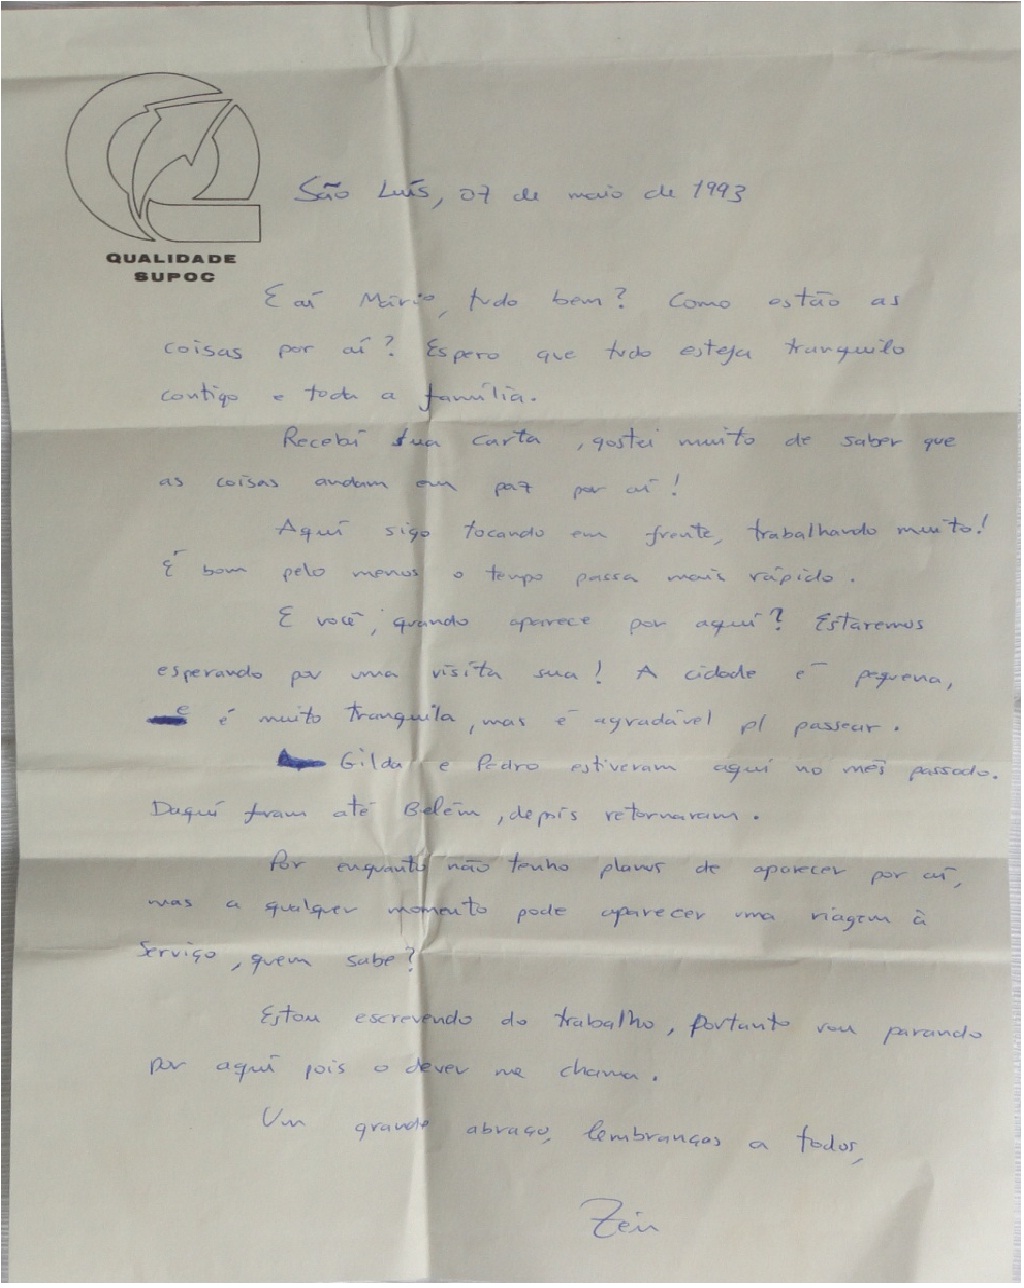 QUALIDADE
SUPOC
São Luís, 07 de maio de 1993
E aí Mário, tudo bem? Como estão as
coisas por aí? Espero que tudo esteja tranquilo
contigo e toda a família.
Recebi sua carta, gostei muito de saber que
as coisas andam em paz por aí!
Aqui sigo tocando em frente, trabalhando muito!
É bom pelo menos o tempo passa mais rápido.
E você, quando aparece por aqui? Estaremos
esperando por uma visita sua! A cidade é pequena,
e é muito tranquila, mas é agradável p/ passear.
Gilda e Pedro estiveram aqui no mês passado.
Daqui foram até Belém, depois retornaram.
Por enquanto não tenho planos de aparecer por aí,
mas a qualquer momento pode aparecer uma viagem à
serviço, quem sabe?
Estou escrevendo do trabalho, portanto vou parando
por aqui pois o dever me chama.
Um grande abraço, lembranças a todos,